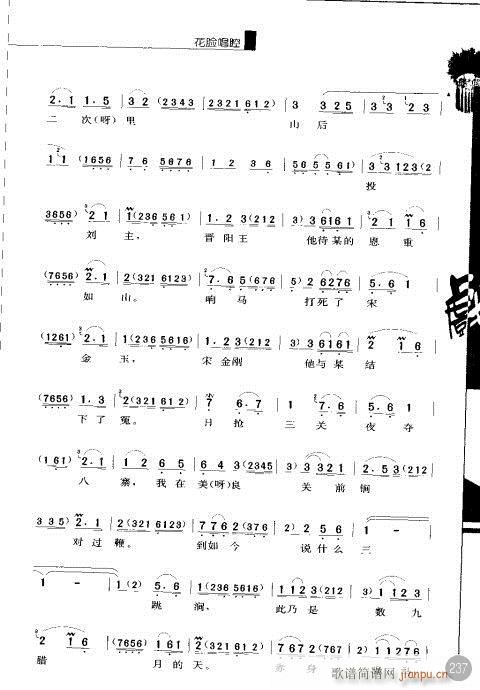 花脸唱腔
2.1 1.5 | 3 2 (2343 | 2321 612) | 3 3 2 5 | 3 3 2 3
二次(呀)里 山后
1 1 (1656 | 7 6 5676 | 1 2 3 6 | 5656561) | 3 3123 (2
投
3656) 2 1 | 1(236 561) | 1.2 3(212 | 3)6161 | 2 1 6
刘主, 晋阳王 他待某的恩重
(7656) 2.1 | 2(321 6123) | 7.6 5(676 | 5)2 6276 | 5.6 5
如山。 响马 打死了宋
(1261) 2.1 | 2(236 5616) | 1.2 3(212 | 3)6 5161 | 2 1 6
金玉, 宋金刚 他与某结
(7656) 1.3 | 2(321 612) | 7 6.7 | 1 7.6 | 5.6 7
下了冤。 日抢三关夜夺
(161) 2.1 | 1 2 6 5 | 6 4 3(2345 | 3) 3321 | 2.53(212
八寨,我在美(呀)良 关前锏
335) 2.1 | 2(321 6123) | 7762(376 | 5)351 | 1 -
对过鞭。 到如今 说什么三
1 - | 1(2) 5.6 | 1(236 5616) | 1123(212 | 3)7 6 7
跳涧, 此乃是数九
2 1 6 | (7656) 1 | 2(321 612) | 7677(212 | 3)2127 6
腊 月的天。 赤身
237
歌谱简谱网
jianpu.cn